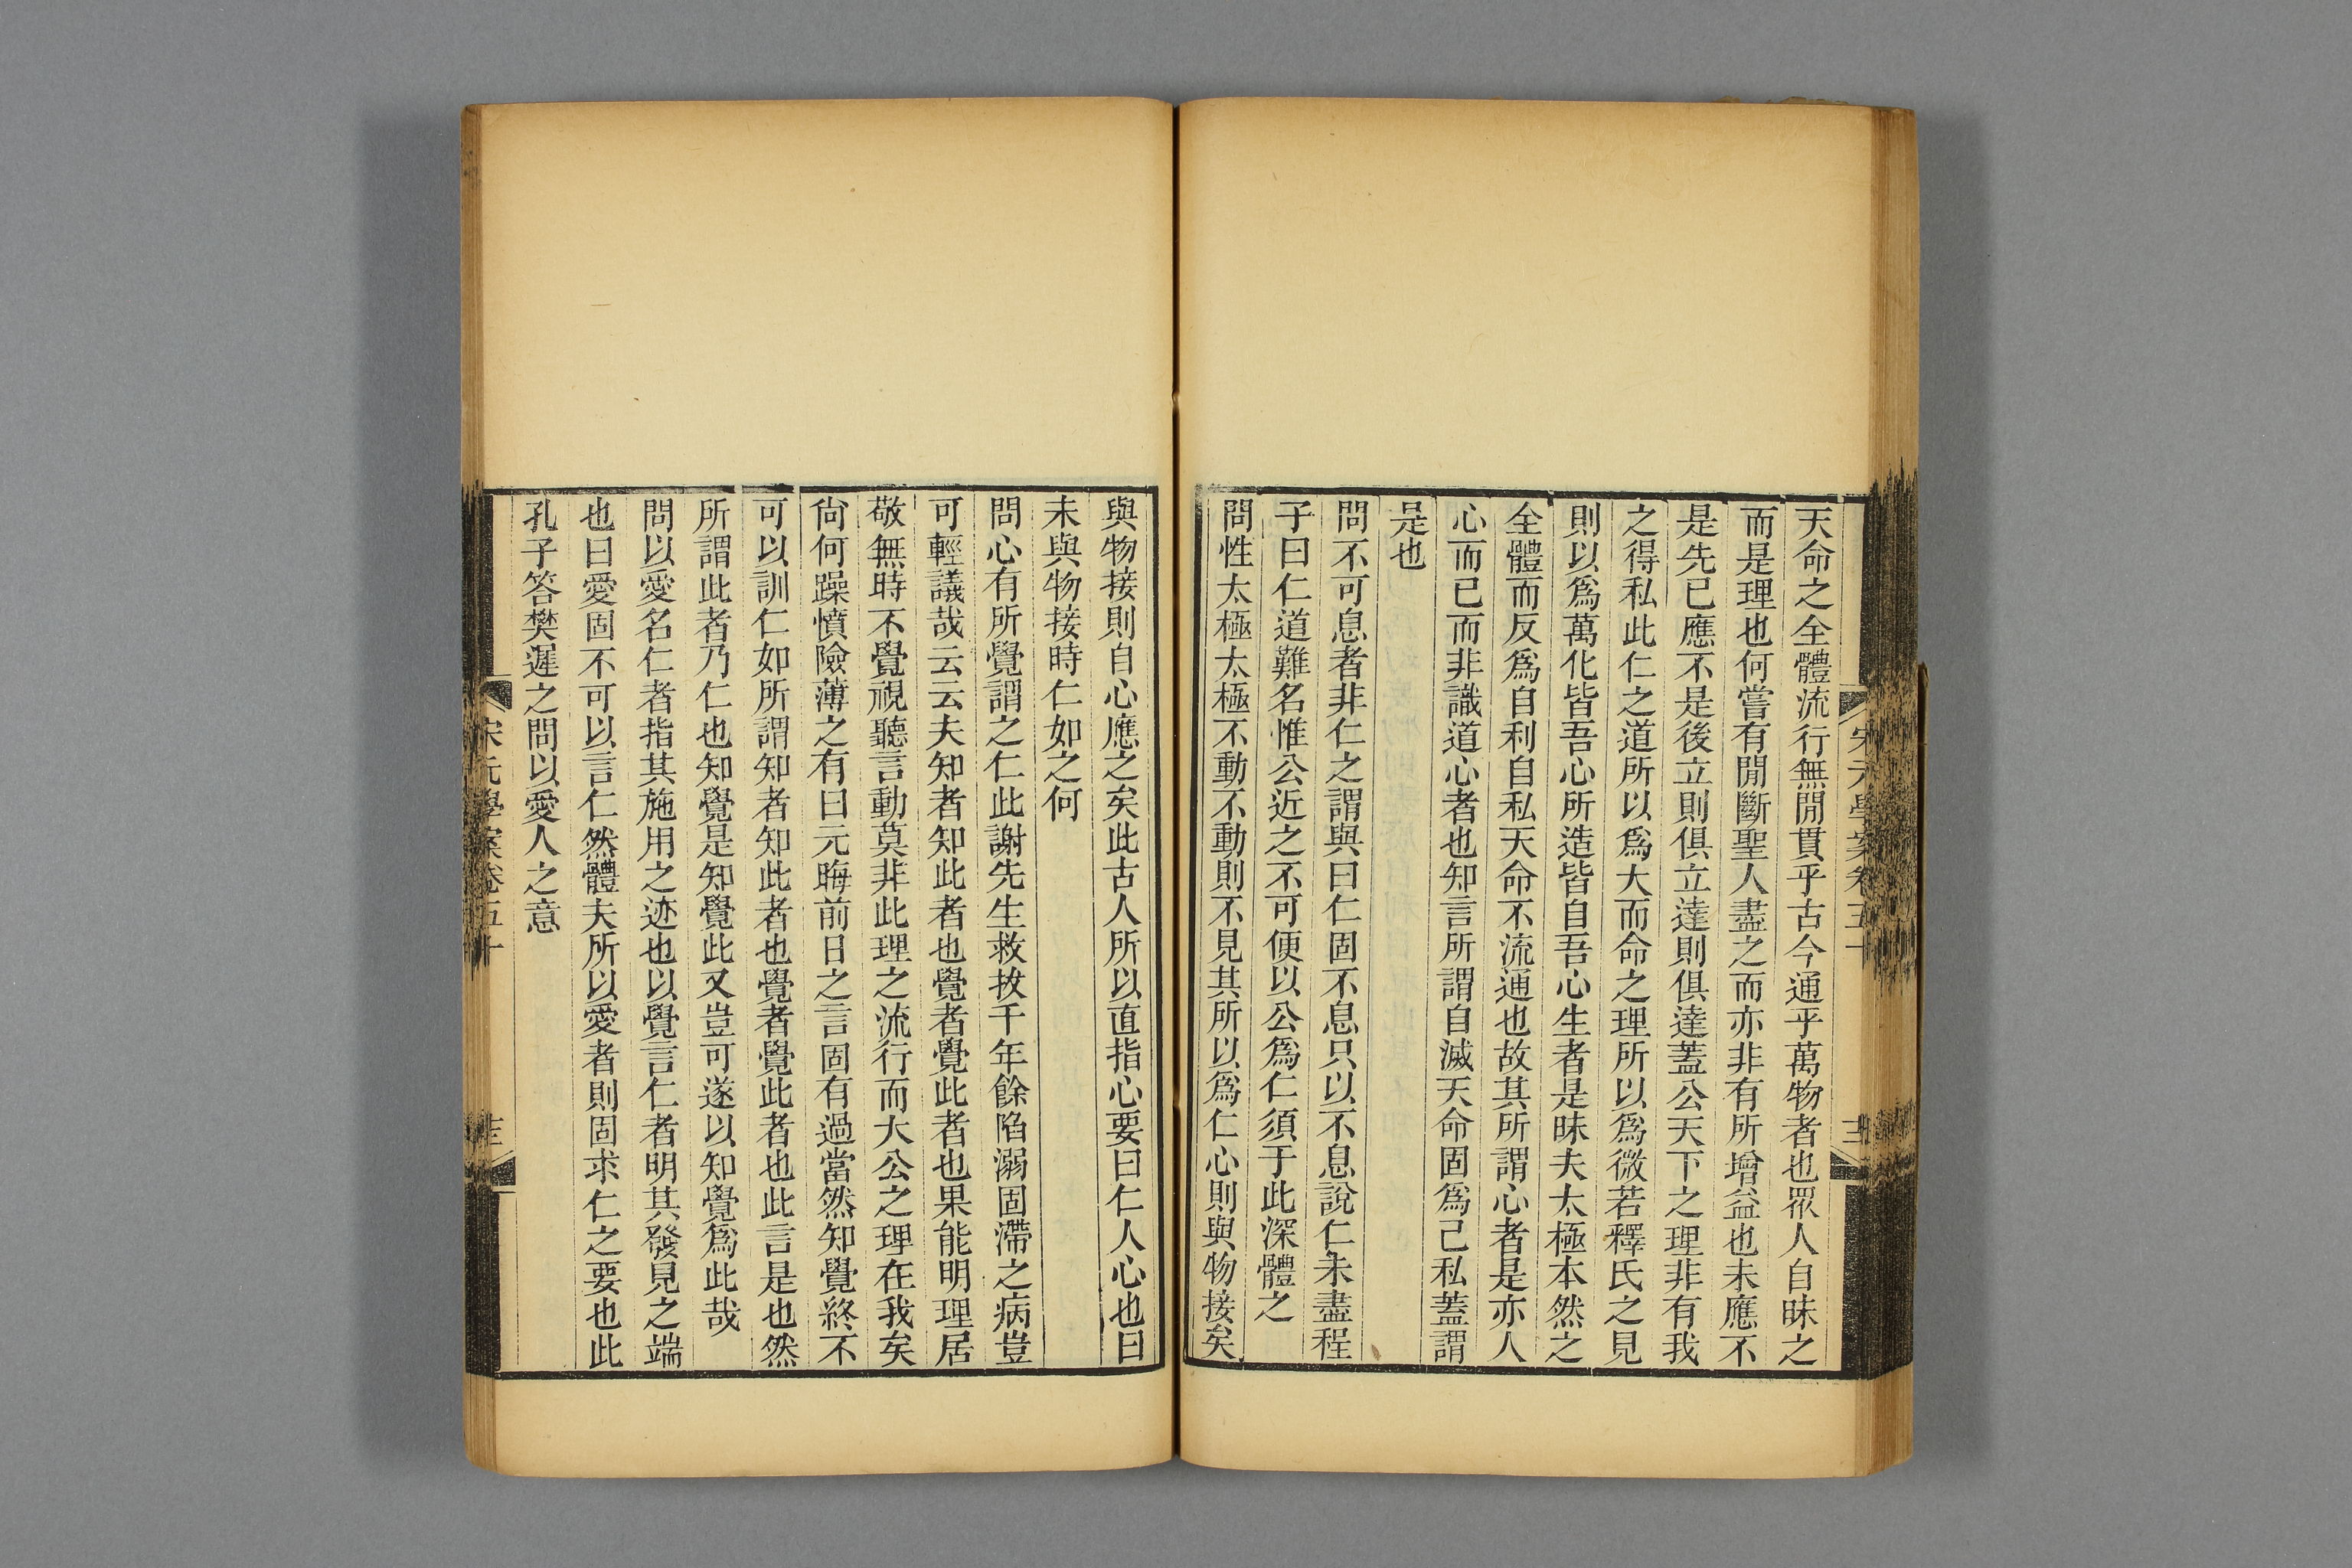 天命之全體流行無閒貫乎古今通乎萬物者也眾人自昧之
而是理也何嘗有閒斷聖人盡之而亦非有所增益也未應不
是先已應不是後立則俱立達則俱達蓋公天下之理非有我
之得私此仁之道所以爲大而命之理所以爲微若釋氏之見
則以爲萬化皆吾心所造皆自吾心生者是昧夫太極本然之
全體而反爲自利自私天命不流通也故其所謂心者是亦人
心而已而非識道心者也知言所謂自滅天命固爲己私蓋謂
是也
問不可息者非仁之謂與曰仁固不息只以不息說仁未盡程
子曰仁道難名惟公近之不可便以公爲仁須于此深體之
問性太極太極不動不動則不見其所以爲仁心則與物接矣
與物接則自心應之矣此古人所以直指心要曰仁人心也曰
未與物接時仁如之何
問心有所覺謂之仁此謝先生救拔千年餘陷溺固滯之病豈
可輕議哉云云夫知者知此者也覺者覺此者也果能明理居
敬無時不覺視聽言動莫非此理之流行而大公之理在我矣
尙何躁憤險薄之有曰元晦前日之言固有過當然知覺終不
可以訓仁如所謂知者知此者也覺者覺此者也此言是也然
所謂此者乃仁也知覺是知覺此又豈可遂以知覺爲此哉
問以愛名仁者指其施用之迹也以覺言仁者明其發見之端
也曰愛固不可以言仁然體夫所以愛者則固求仁之要也此
孔子答樊遲之問以愛人之意
宋元學案卷五十